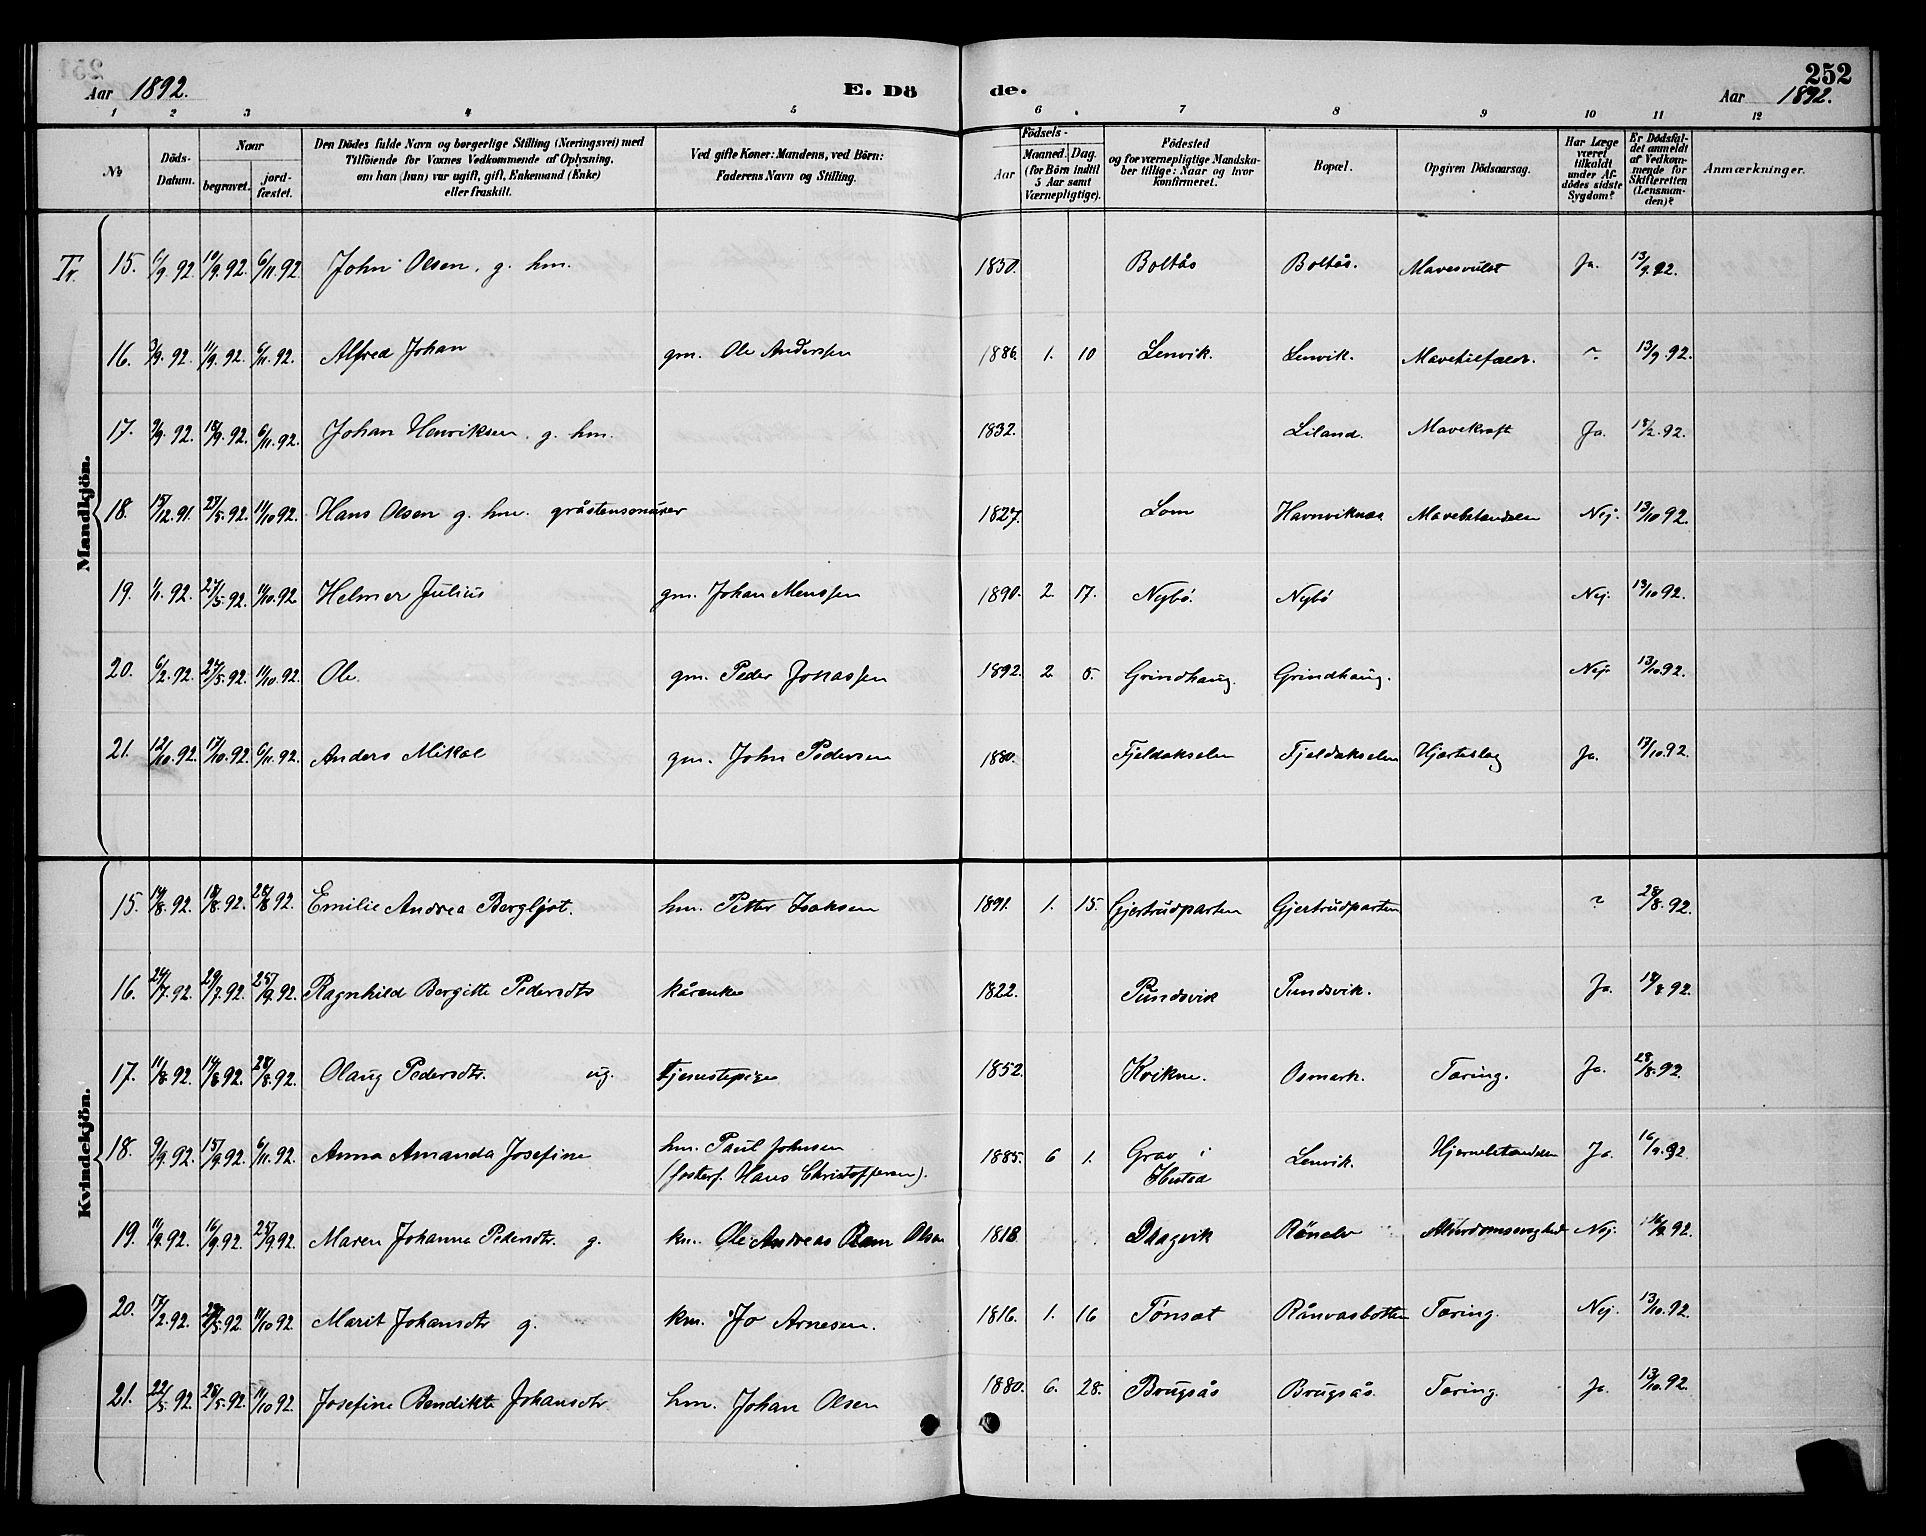 252
Aar 1892. E. Dö de. Aar 1892.
1 2 3 4 5 6 7 8 9 10 11 12
No
Döds-Datum.
Naar
begravet.
jordfæstet.
Den Dödes fulde Navn og borgerlige Stilling (Næringsvei) med
Tilföiende for Voxnes Vedkommende af Oplysning,
om han (hun) var ugift, gift, Enkemand (Enke)
eller fraskilt.
Ved gifte Koner: Mandens, ved Börn:
Faderens Navn og Stilling.
Födsels-
Aar
Maaned. Dag.
(for Börn indtil
5 Aar samt
Værnepligtige).
Födested
og for værnepligtige Mandska-
ber tillige: Naar og hvor
konfirmeret.
Bopæl.
Opgiven Dödsaarsag.
Har Læge
været
tilkaldt
under Af-
dödes sidste
Sygdom?
Er Dødsfal-
det anmeldt
af Vedkom-
mende for
Skifteretten
(Lensman-
den)?
Anmærkninger.
Tr.
Mandkjön.
15. 6/9 92 10/9 92. 6/11 92 John Olsen, g. hm. 1850. Boltås Boltås. Mavesvulst Ja. 13/9 92.
16. 3/9 92. 11/9 92. 6/11 92. Alfred Johan gm. Ole Anderssen 1886. 1. 10 Lenvik. Lenvik. Mavetilfælde. ~ 13/9 92.
17. 9/9 92. 18/9 92. 6/11 92. Johan Henriksen, g. hm. 1832. Liland. Mavekræft Ja. 18/2 92.
18. 15/12 91. 27/5 92. 11/10 92. Hans Olsen g. hm. gråstensmurer 1827. Lom Havnviknes Mavebetændelse Nej. 13/10 92.
19. 1/1 92. 27/5 92. 11/10 92 Helmer Julius gm. Johan Menssen 1890. 2. 17. Nybö. Nybö Nej. 13/10 92.
20. 6/2 92. 27/5 92. 11/10 92. Ole gm. Peder Jonassen 1892. 2 5. Grindhaug. Grindhaug. Nej. 13/10 92.
21. 12/10 92. 17/10 92. 6/11 92. Anders Mikal gm. John Pedersen 1880. Fjeldakselen Fjeldakselen Hjerteslag Ja. 17/10 92.
Kvindekjön.
15. 14/8 92. 18/8 92. 28/8 92. Emilie Andrea Bergljot. hm. Petter Isaksen 1891. 1. 15. Gjertrudparten Gjertrudparten ~ 28/8 92.
16. 24/7 92. 29/7 92. 25/9 92. Ragnhild Bergitte Pedersdtr kårenke 1822. Pundsvik Pundsvik. Ja. 14/8 92.
17. 11/8 92. 14/8 92. 28/8 92. Olaug Pedersdtr. ug. tjenestepige 1852. Kvikne. Osmark. Tæring. Ja. 28/8 92.
18. 9/9 92. 15/9 92. 6/11 92. Anna Amanda Josefine hm. Paul Johnsen 1885. 6 1. Grav i Lenvik. Hjernebetændelse Ja. 16/9 92.
(fosterf. Hans Christoffersen). Ibestad
19. 11/9 92. 16/9 92. 25/9 92. Maren Johanna Pedersdtr. g. km. Ole Andreas Olsen 1818. Dragvik Rånelv Alderdomssvaghed Nej. 16/9 92.
20. 17/2 92. 27/5 92. 11/10 92. Marit Johansdtr g. km. Jo Arnesen. 1816. 1. 16 Tönset Rånvasbotten Tæring. Nej. 13/10 92.
21. 22/5 92. 28/5 92. 11/10 92. Josefine Bendikte Johansdtr. hm. Johan Olsen 1880. 6. 28. Brugsås Brugsås. Tæring. Ja. 13/10 92.